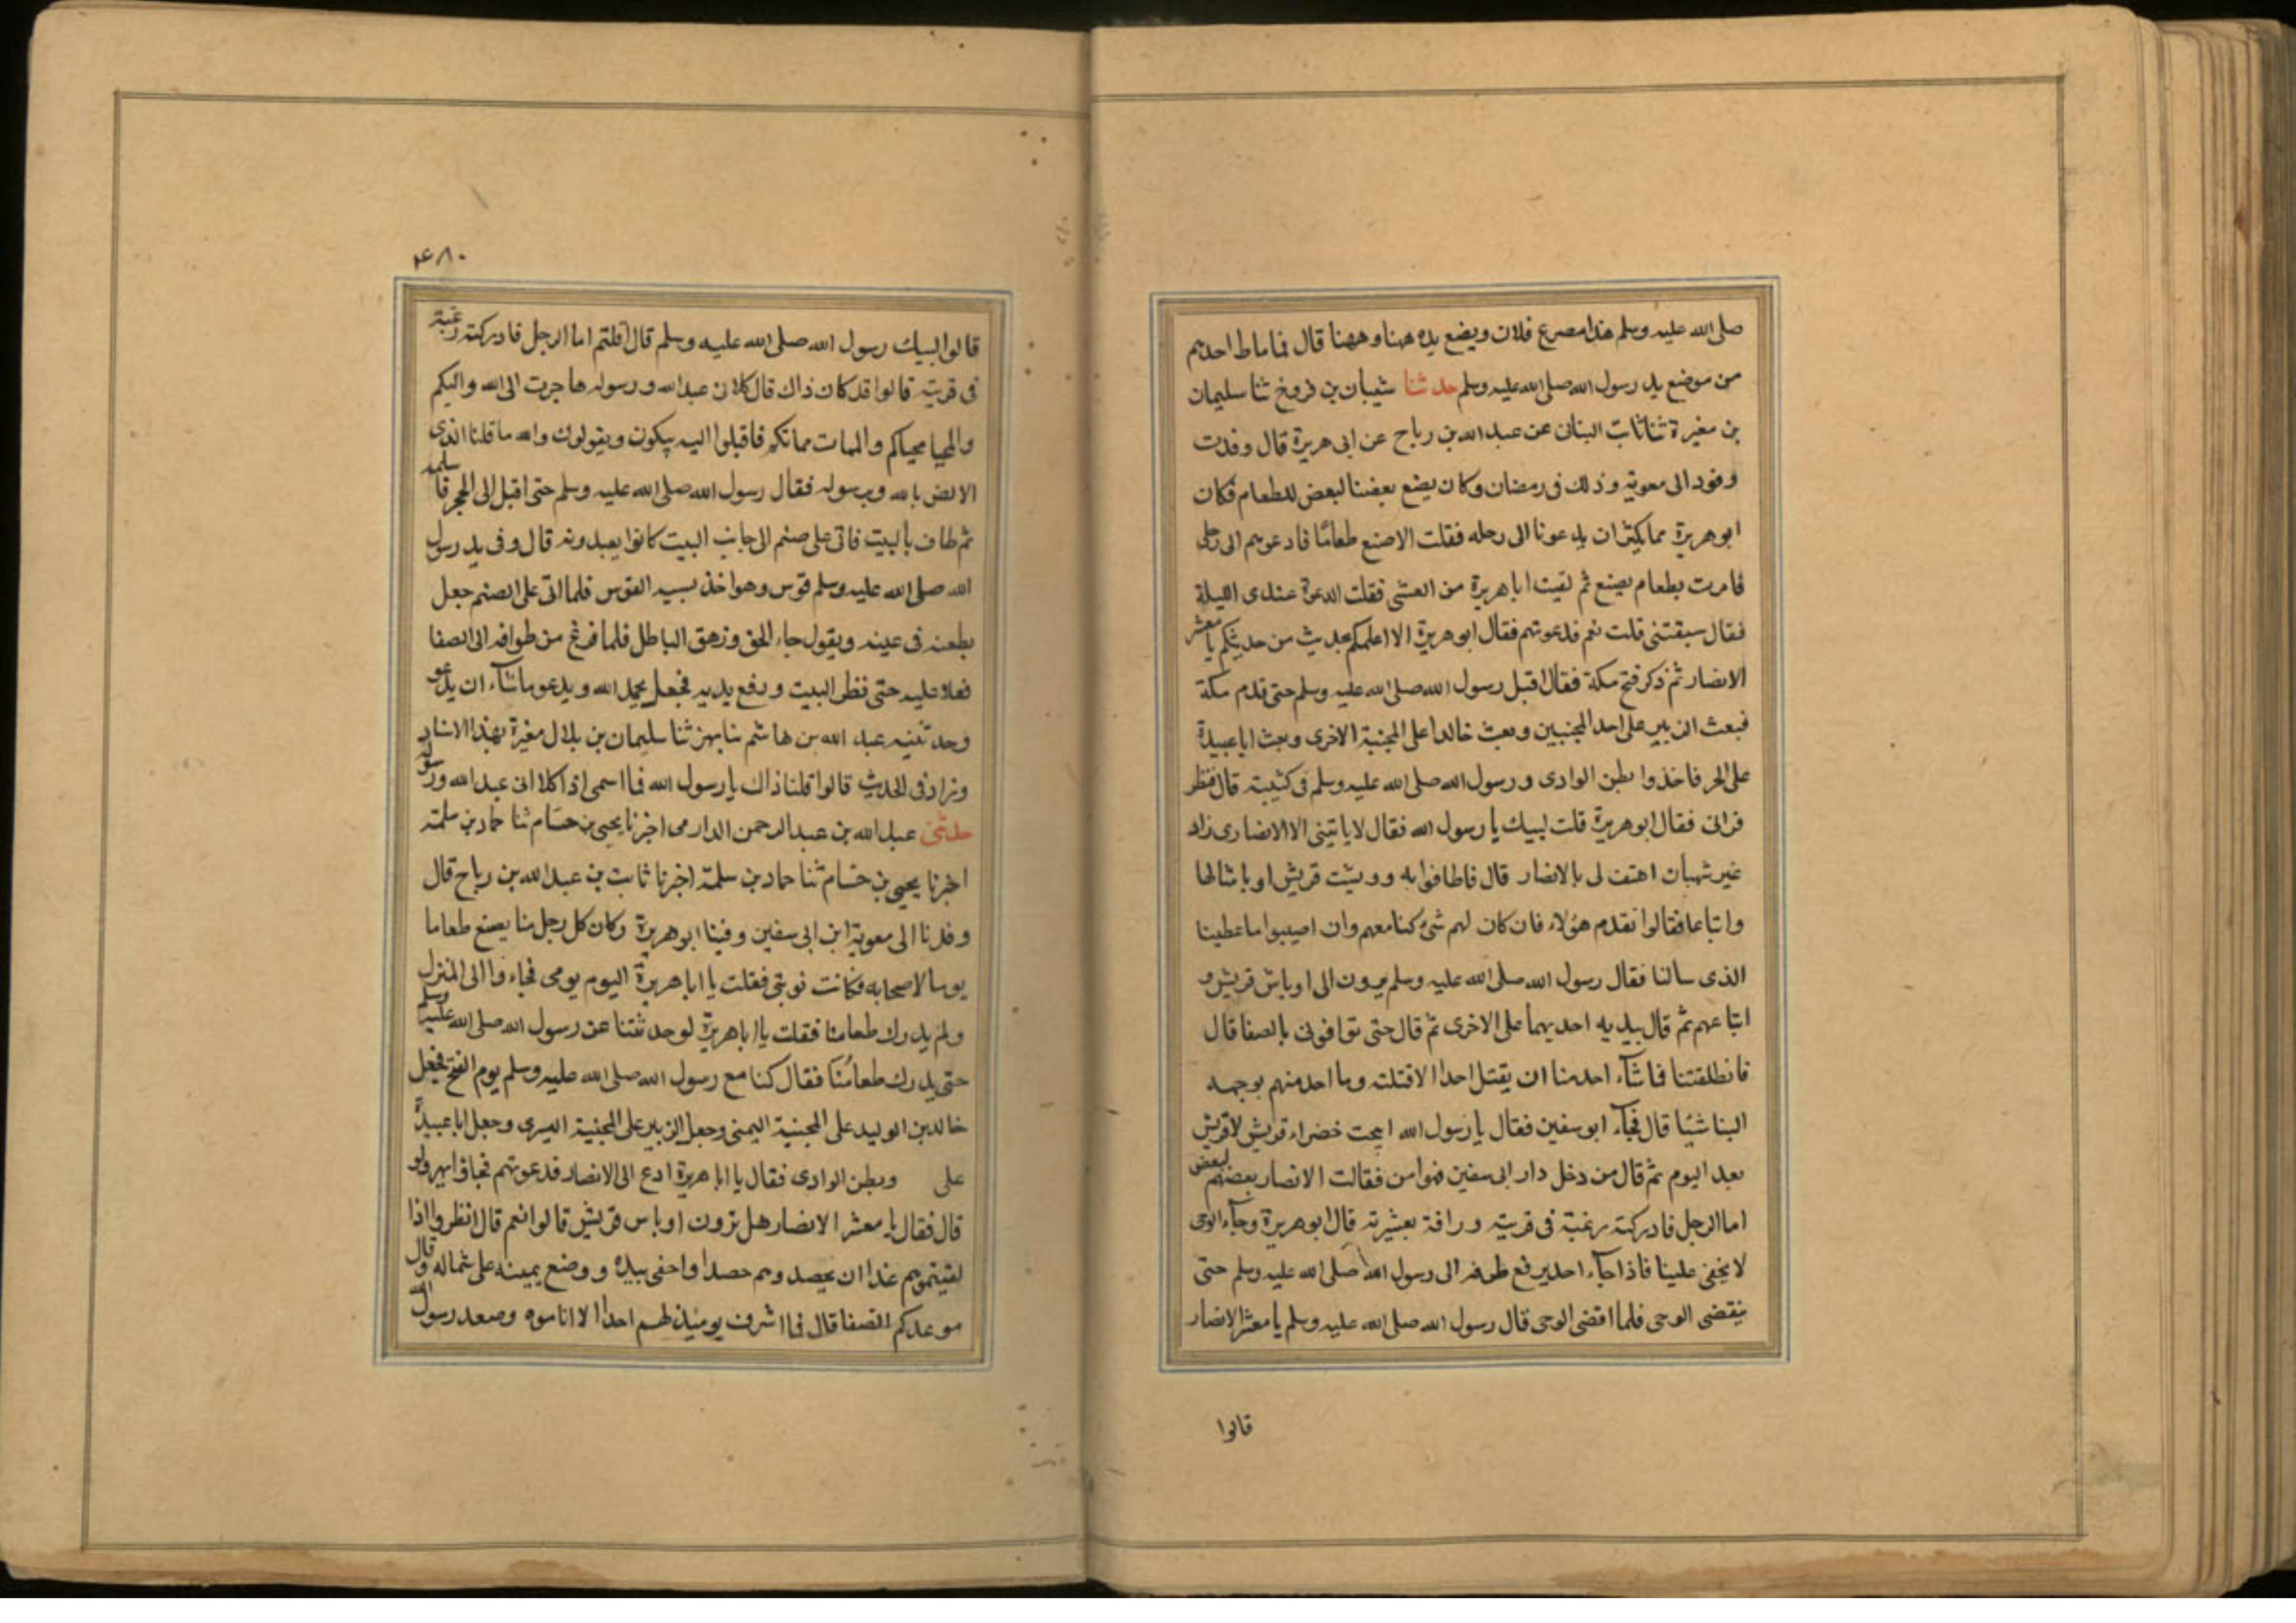 صلى الله عليه وسلم هذا مصرع فلان ويضع يده ههنا وههنا قال فما ماط احدهم
من موضع يد رسول الله صلى الله عليه وسلم حدثنا شيبان بن فروخ ثنا سليمان
بن مغيرة ثنا ثابت البنانى عن عبد الله بن رباح عن ابى هريرة قال وفدت
وفود الى معوية وذلك فى رمضان وكان يضع بعضنا لبعض للطعام فكان
ابو هريرة مما يكثر ان يدعونا الى رحله فقلت الاصنع طعامًا فادعوهم الى رحلى
فامرت بطعام يصنع ثم لقيت ابا هريرة من العشى فقلت الدعوة عندى الليلة
فقال سبقتنى قلت نعم فدعوتهم فقال ابو هريرة الا اعلمكم بحديث من حديثكم يا معشر
الانصار ثم ذكر فتح مكة فقال اقبل رسول الله صلى الله عليه وسلم حتى قدم مكة
فبعث الزبير على احد المجنبتين وبعث خالدا على المجنبة الاخرى وبعث ابا عبيدة
على الحر فاخذوا بطن الوادى ورسول الله صلى الله عليه وسلم فى كتيبته قال فنظر
فرانى فقال ابو هريرة قلت لبيك يا رسول الله فقال لا ياتينى الا الانصارى زاد
غير شيبان اهتف لى بالانصار قال فاطافوا به ووبشت قريش اوباشا لها
واتباعا فقالوا نقدم هؤلاء فان كان لهم شئ كنا معهم وان اصيبوا ما عطينا
الذى سالنا فقال رسول الله صلى الله عليه وسلم يرون الى اوباش قريش و
اتباعهم ثم قال بيديه احديهما على الاخرى ثم قال حتى توافونى بالصفا قال
فانطلقتنا فما شآء احد منا ان يقتل احدا الا قتلته وما احد منهم يوجه
الينا شيئا قال فجآء ابو سفين فقال يا رسول الله ابيحت خضراء قريش لا قريش
بعد اليوم ثم قال من دخل دار ابى سفين فهو امن فقالت الانصار بعضهم لبعض
اما الرجل فادركته رغبة فى قريته ورافة بعشيرته قال ابو هريرة وجآء الوحى
لا يخفى علينا فاذا جآء احد يرفع طرفه الى رسول الله صلى الله عليه وسلم حتى
ينقضى الوحى فلما اقضى الوحى قال رسول الله صلى الله عليه وسلم يا معشر الانصار
قالوا
قالوا لبيك رسول الله صلى الله عليه وسلم قال اقلتم اما الرجل فادركته رغبة
فى قريته قالوا قد كان ذاك قال كلا ان عبد الله ورسوله هاجرت الى الله واليكم
والمحيا محياكم والممات مماتكم فاقبلوا اليه يبكون ويقولون والله ما قلنا الذى
الا الضن بالله وبرسوله فقال رسول الله صلى الله عليه وسلم حتى اقبل الى الحجر فاستلمه
ثم طاف بالبيت فاتى على صنم الى جانب البيت كانوا يعبدونه قال وفى يد رسول
الله صلى الله عليه وسلم قوس وهو اخذ بسيه القوس فلما اتى على الصنم جعل
يطعنه فى عينه ويقول جاء الحق وزهق الباطل فلما فرغ من طوافه الى الصفا
فعلا عليه حتى نظر البيت ورفع يديه فجعل يحمد الله ويدعو ما شآء ان يدعو
وحدثنيه عبد الله بن هاشم ثنا بهز ثنا سليمان بن بلال مغيرة بهذا الاسناد
وزاد فى الحديث قالوا قلنا ذاك يا رسول الله فما اسمى اذا كلا انى عبد الله ورسوله
حدثنى عبد الله بن عبد الرحمن الدارمى اخبرنا يحيى بن حسام ثنا حماد بن سلمة
اخبرنا يحيى بن حسام ثنا حماد بن سلمة اخبرنا ثابت بن عبد الله بن رباح قال
وفدنا الى معوية ابن ابى سفين وفينا ابو هريرة وكان كل رجل منا يصنع طعاما
يوما لاصحابه فكانت نوبتى فقلت يا ابا هريرة اليوم يومى فجاءوا الى المنزل
ولم يدرك طعامنا فقلت يا ابا هريرة لو حدثتنا عن رسول الله صلى الله عليه وسلم
حتى يدرك طعامُنا فقال كنا مع رسول الله صلى الله عليه وسلم يوم الفتح فجعل
خالد بن الوليد على المجنبة اليمنى وجعل الزبير على المجنبة اليسرى وجعل ابا عبيدة
على وبطن الوادى فقال يا ابا هريرة ادع الى الانصار فدعوتهم فجاؤا يهرولو
قال فقال يا معشر الانصار هل ترون اوباس قريش قالوا نعم قال انظروا اذا
لقيتموهم غدا ان تحصدوهم حصدا واحفى بيده ووضع يمينه على شماله وقال
موعدكم الصفا قال فما اشرف يومئذ لهم احدا الا اناموه وصعد رسول الله